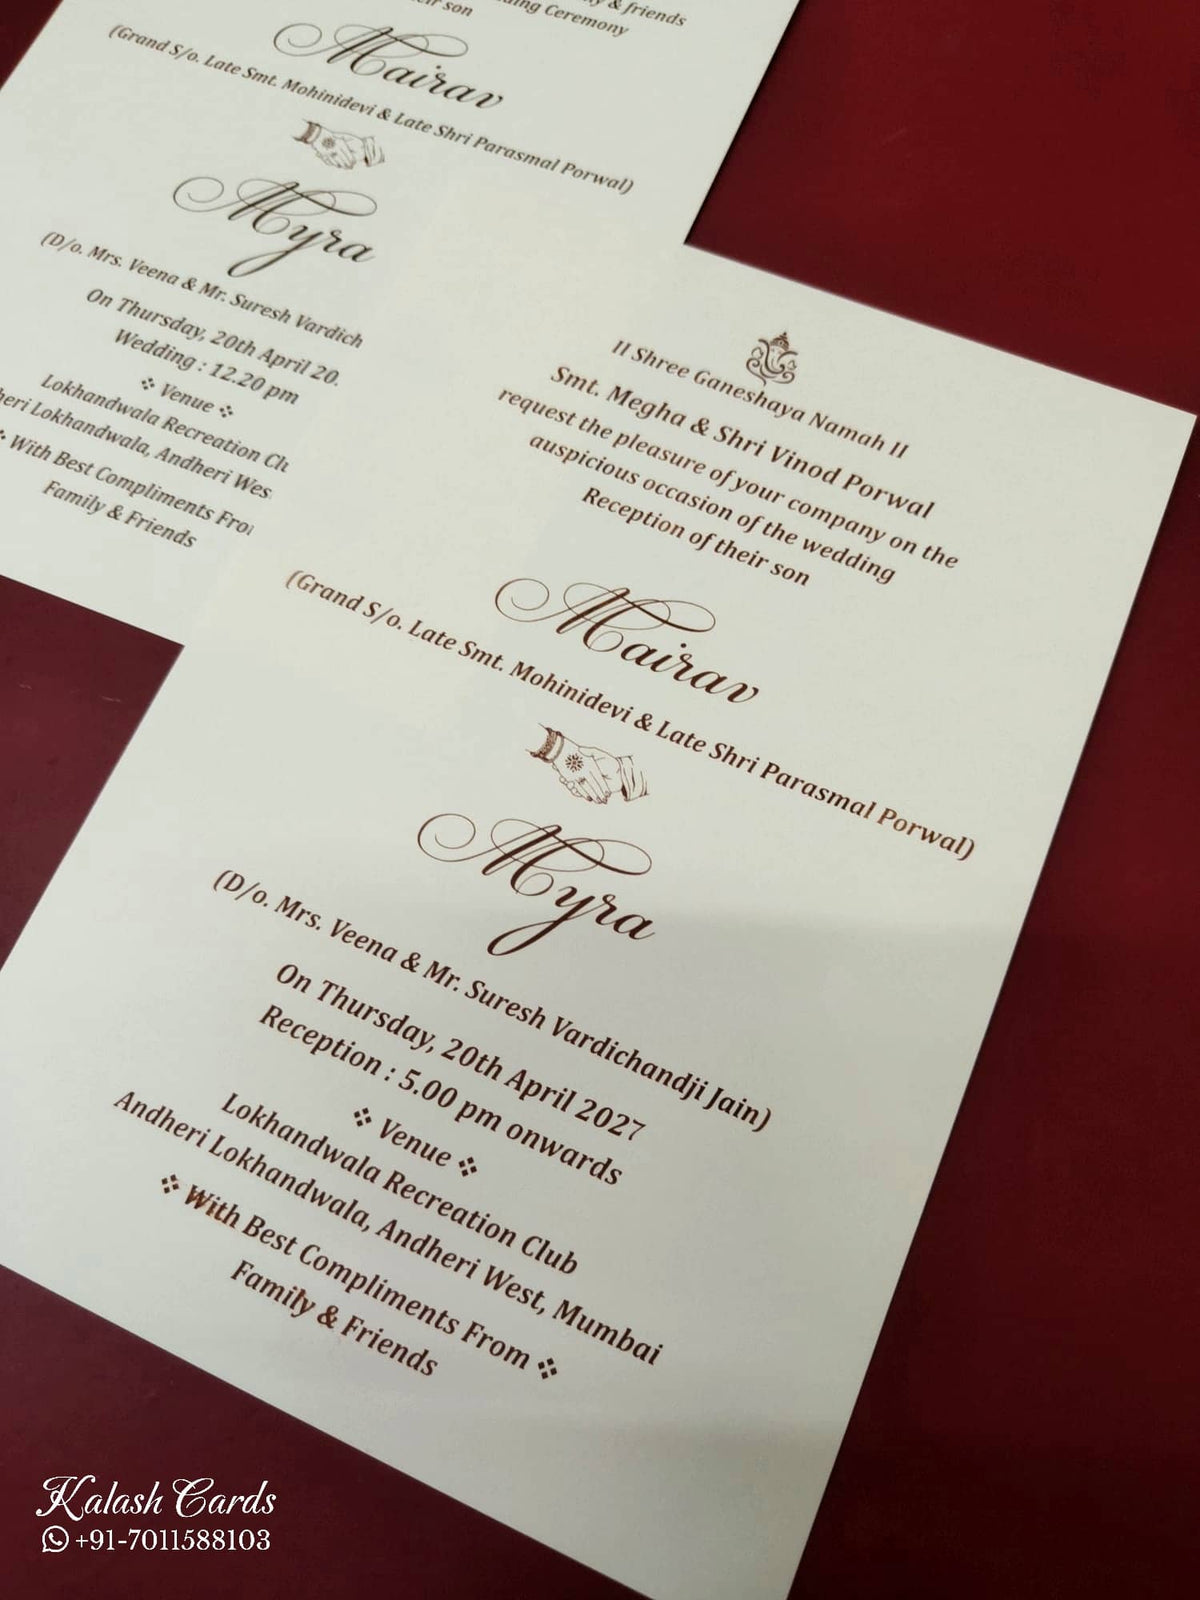 & friends
Ceremony
son
Mairav
(Grand S/o. Late Smt. Mohinidevi & Late Shri Parasmal Porwal)
Myra
(D/o. Mrs. Veena & Mr. Suresh Vardich
On Thursday, 20th April 20.
Wedding : 12.20 pm
Venue
Lokhandwala Recreation
Lokhandwala, Andheri Wes
With Best Compliments
Family & Friends
II Shree Ganeshaya Namah II
Smt. Megha & Shri Vinod Porwal
request the pleasure of your company on the
auspicious occasion of the wedding
Reception of their son
Mairav
(Grand S/o. Late Smt. Mohinidevi & Late Shri Parasmal Porwal)
Myra
(D/o. Mrs. Veena & Mr. Suresh Vardichandji Jain)
On Thursday, 20th April 2027
Reception : 5.00 pm onwards
Venue
Lokhandwala Recreation Club
Andheri Lokhandwala, Andheri West, Mumbai
With Best Compliments From
Family & Friends
Kalash Cards
+91-7011588103